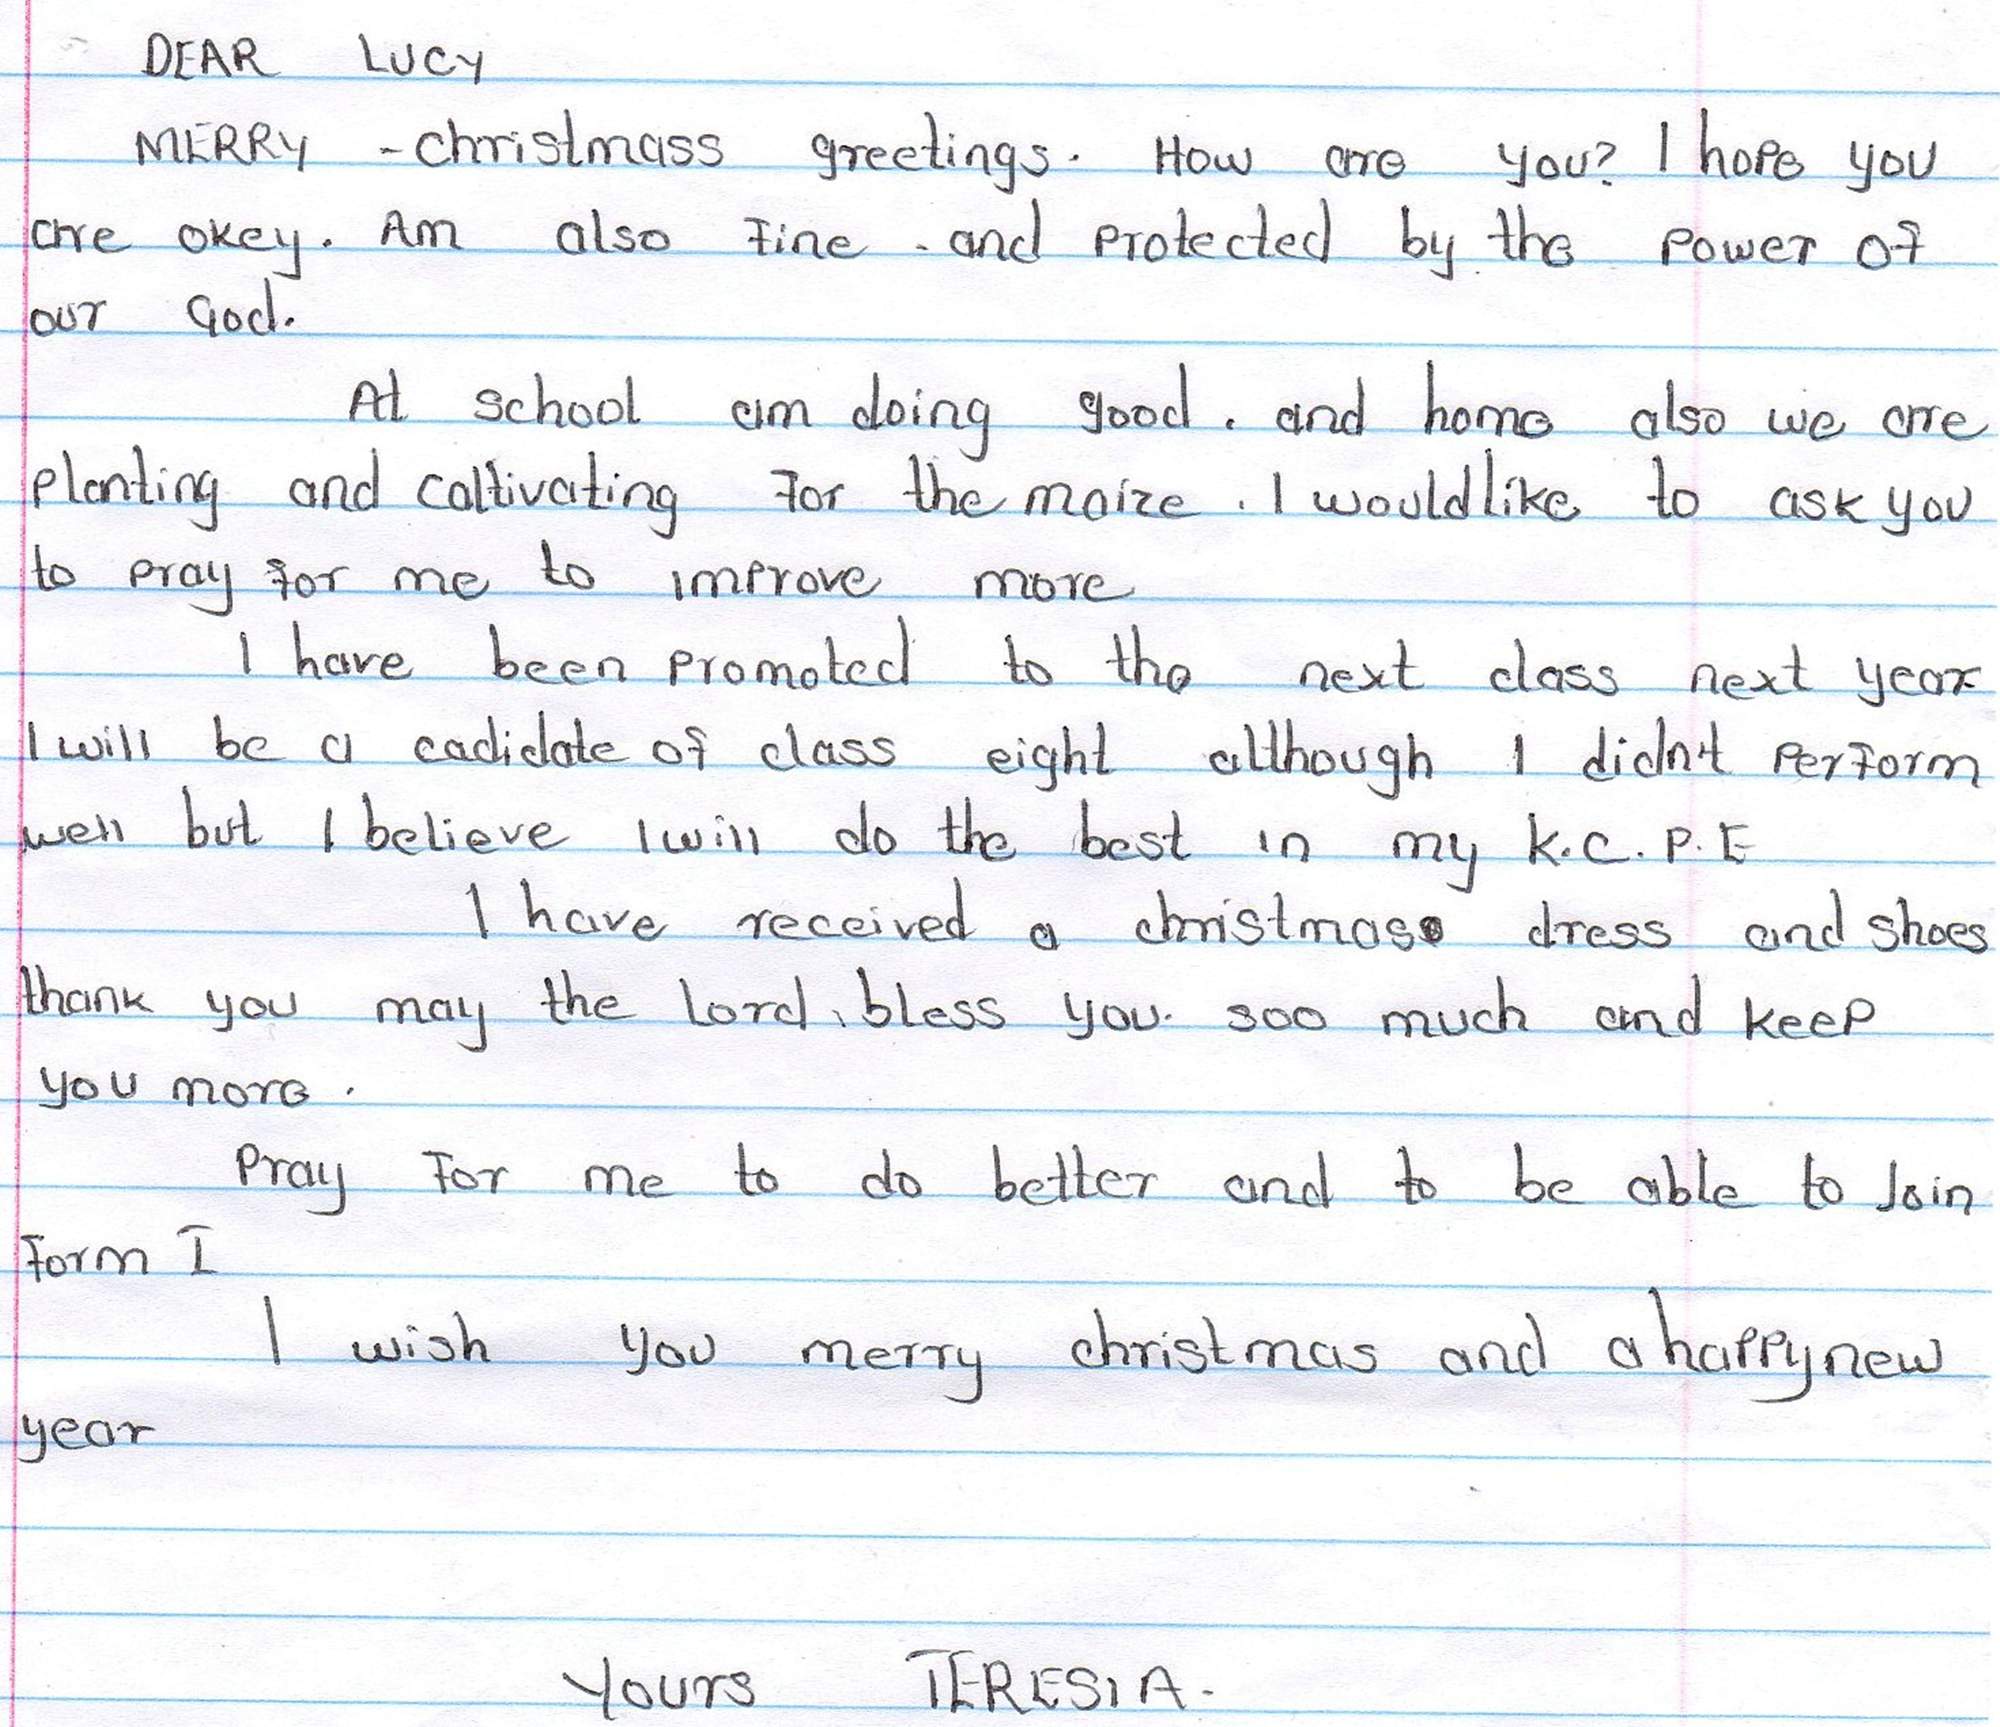 DEAR LUCY
MERRY -christmass greetings. How are you? I hope you
are okey. Am also fine . and protected by the power of
our God.
At school am doing good. and home also we are
planting and caltivating for the maize. I would like to ask you
to pray for me to improve more
I have been promoted to the next class next year
I will be a cadidate of class eight although I didn't perform
well but I believe I will do the best in my K.C.P.E
I have received a christmas dress and shoes
thank you may the Lord, bless you. soo much and keep
you more.
Pray for me to do better and to be able to Join
Form I
I wish you merry christmas and a happy new
year
Yours TERESIA.